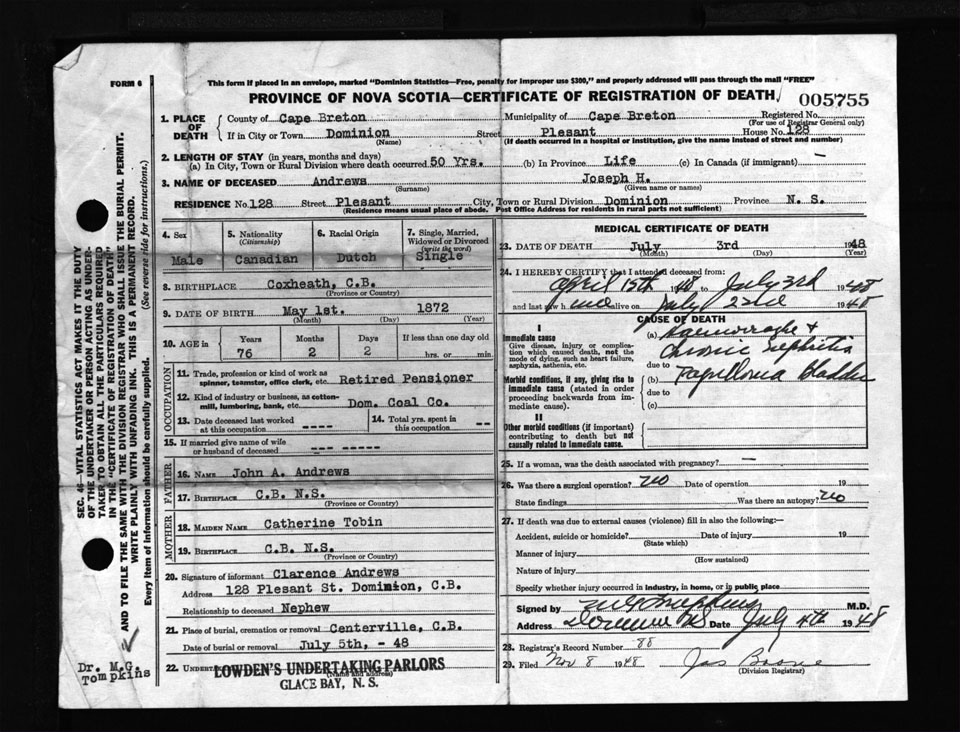 FORM 6
This form if placed in an envelope, marked "Dominion Statistics—Free, penalty for improper use $300," and properly addressed will pass through the mail "FREE"
PROVINCE OF NOVA SCOTIA—CERTIFICATE OF REGISTRATION OF DEATH
005755
1. PLACE OF DEATH
County of Cape Breton
Municipality of Cape Breton
Registered No.
(For use of Registrar General only)
If in City or Town Dominion
(Name)
Street Plesant House No. 128
(If death occurred in a hospital or institution, give the name instead of street and number)
2. LENGTH OF STAY (in years, months and days)
(a) In City, Town or Rural Division where death occurred 50 Yrs. (b) In Province Life (c) In Canada (if immigrant) —
3. NAME OF DECEASED Andrews Joseph H.
(Surname) (Given name or names)
RESIDENCE No. 128 Street Plesant City, Town or Rural Division Dominion Province N. S.
(Residence means usual place of abode. Post Office Address for residents in rural parts not sufficient)
4. Sex
Male
5. Nationality
(Citizenship)
Canadian
6. Racial Origin
Dutch
7. Single, Married, Widowed or Divorced
(write the word)
Single
8. BIRTHPLACE Coxheath, C.B.
(Province or Country)
9. DATE OF BIRTH May 1st. 1872
(Month) (Day) (Year)
10. AGE in
Years Months Days If less than one day old
76 2 2 hrs. or min.
OCCUPATION
11. Trade, profession or kind of work as
spinner, teamster, office clerk, etc. Retired Pensioner
12. Kind of industry or business, as cotton-
mill, lumbering, bank, etc. Dom. Coal Co.
13. Date deceased last worked
at this occupation ----
14. Total yrs. spent in
this occupation --
15. If married give name of wife
or husband of deceased ----
FATHER
16. NAME John A. Andrews
17. BIRTHPLACE C.B. N.S.
(Province or Country)
MOTHER
18. MAIDEN NAME Catherine Tobin
19. BIRTHPLACE C.B. N.S.
(Province or Country)
20. Signature of informant Clarence Andrews
Address 128 Plesant St. Dominion, C.B.
Relationship to deceased Nephew
21. Place of burial, cremation or removal Centerville, C.B.
Date of burial or removal July 5th, - 48
22. UNDERTAKER
(Name and address)
LOWDEN'S UNDERTAKING PARLORS
GLACE BAY, N. S.
MEDICAL CERTIFICATE OF DEATH
23. DATE OF DEATH July 3rd 1948
(Month) (Day) (Year)
24. I HEREBY CERTIFY that I attended deceased from:
April 15th 1948 to July 3rd 1948
and last saw h alive on July 1948
CAUSE OF DEATH
I
Immediate cause
Give disease, injury or complica-
tion which caused death, not the
mode of dying, such as heart failure,
asphyxia, asthenia, etc.
(a) Haemorraghe +
Chronic Nephritis
due to
Morbid conditions, if any, giving rise to
immediate cause (stated in order
proceeding backwards from im-
mediate cause).
(b) Papilloma Bladder
due to
(c)
II
Other morbid conditions (if important)
contributing to death but not
causally related to immediate cause.
25. If a woman, was the death associated with pregnancy? —
26. Was there a surgical operation? no Date of operation 19
State findings Was there an autopsy? no
27. If death was due to external causes (violence) fill in also the following:—
Accident, suicide or homicide? Date of injury 19
(State which)
Manner of injury
(How sustained)
Nature of injury
Specify whether injury occurred in industry, in home, or in public place
Signed by M.D.
Address Date July 4th 1948
28. Registrar's Record Number 88
29. Filed Nov 8 1948 Jas Boone
(Division Registrar)
SEC. 46 VITAL STATISTICS ACT MAKES IT THE DUTY
OF THE UNDERTAKER OR PERSON ACTING AS UNDER-
TAKER TO OBTAIN ALL THE PARTICULARS REQUIRED
IN THE "CERTIFICATE OF REGISTRATION OF DEATH"
AND TO FILE THE SAME WITH THE DIVISION REGISTRAR WHO SHALL ISSUE THE BURIAL PERMIT.
WRITE PLAINLY WITH UNFADING INK. THIS IS A PERMANENT RECORD.
Every item of information should be carefully supplied. (See reverse side for instructions.)
Dr. M.G.
Tompkins